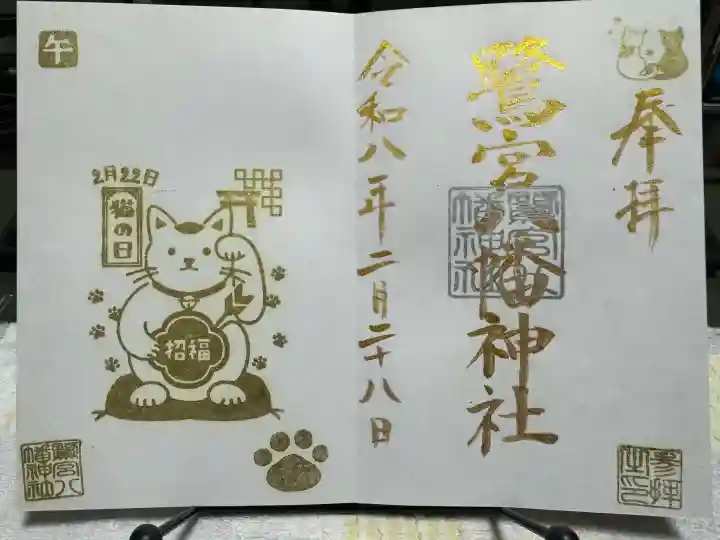 奉拝
鷺宮八幡神社
鷺宮八幡神社
參拝之印
令和八年二月二十八日
午
2月22日
猫の日
招福
鷺宮八幡神社